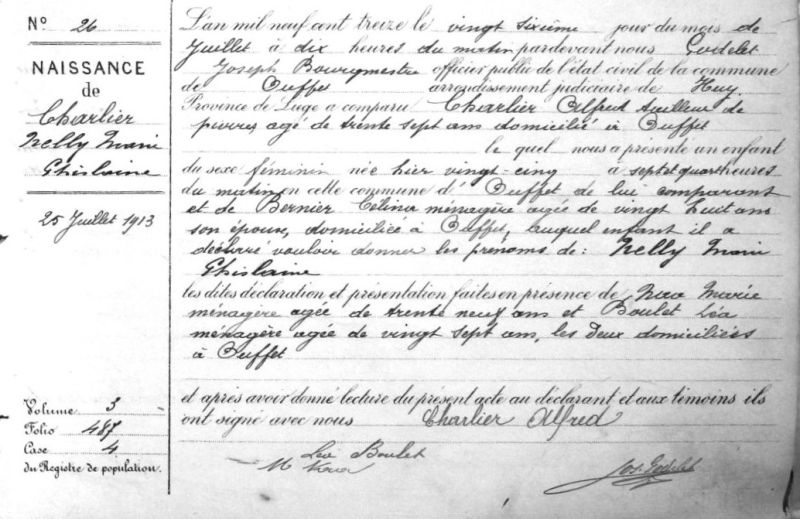 N° 26
NAISSANCE
de
Charlier
Nelly Marie
Ghislaine
25 Juillet 1913
Volume 3
Folio 487
Case 4
du Registre de population.
L'an mil neuf cent treize le vingt sixième jour du mois de
Juillet à dix heures du matin pardevant nous Godelet
Joseph Bourgmestre officier public de l'état civil de la commune
de Ouffet arrondissement judiciaire de Huy
Province de Liège a comparu Charlier Alfred tailleur de
pierres agé de trente sept ans domicilié à Ouffet
le quel nous a présenté un enfant
du sexe féminin née hier vingt-cinq à sept et quart heures
du matin en cette commune d'Ouffet de lui comparant
et de Bernier Célina ménagère agée de vingt huit ans
son épouse, domiciliée à Ouffet, auquel enfant il a
déclaré vouloir donner les prénoms de: Nelly Marie
Ghislaine
les dites déclaration et présentation faites en présence de Marie
ménagère agée de trente neuf ans et Boulet Léa
ménagère agée de vingt sept ans, les deux domiciliées
à Ouffet
et après avoir donné lecture du présent acte au déclarant et aux témoins ils
ont signé avec nous Charlier Alfred
Léa Boulet
M
Jos. Godelet